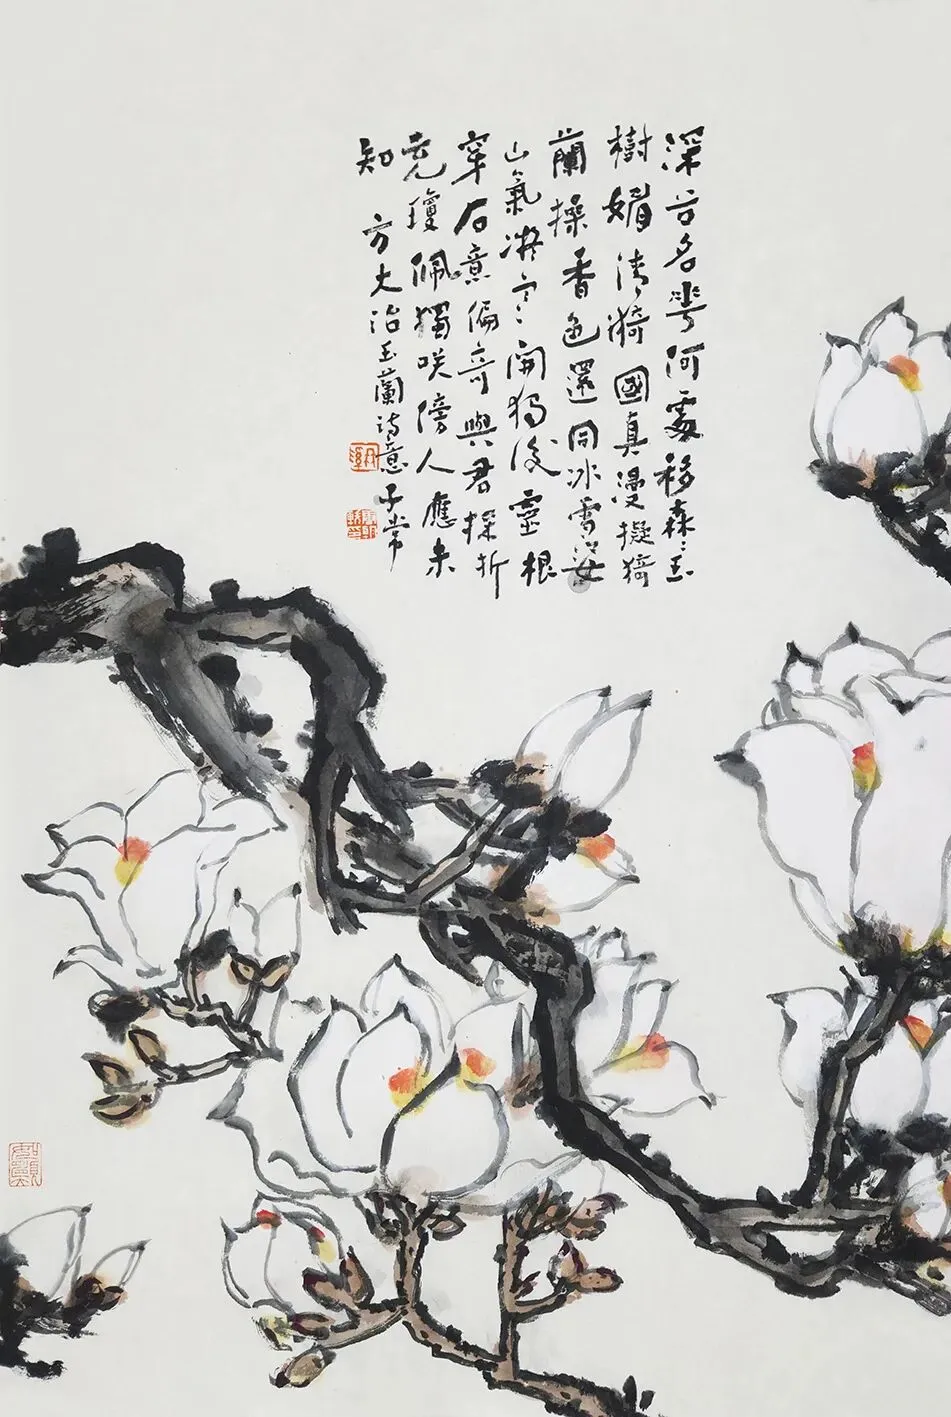 深谷名華何處移森〻玉
樹媚清漪國真漫擬猗
蘭操香色還同冰雪姿
山氣凝寒開獨後靈根
穿石意偏奇與君採折
充瓊佩獨咲傍人應未
知 方大治玉蘭詩意子常